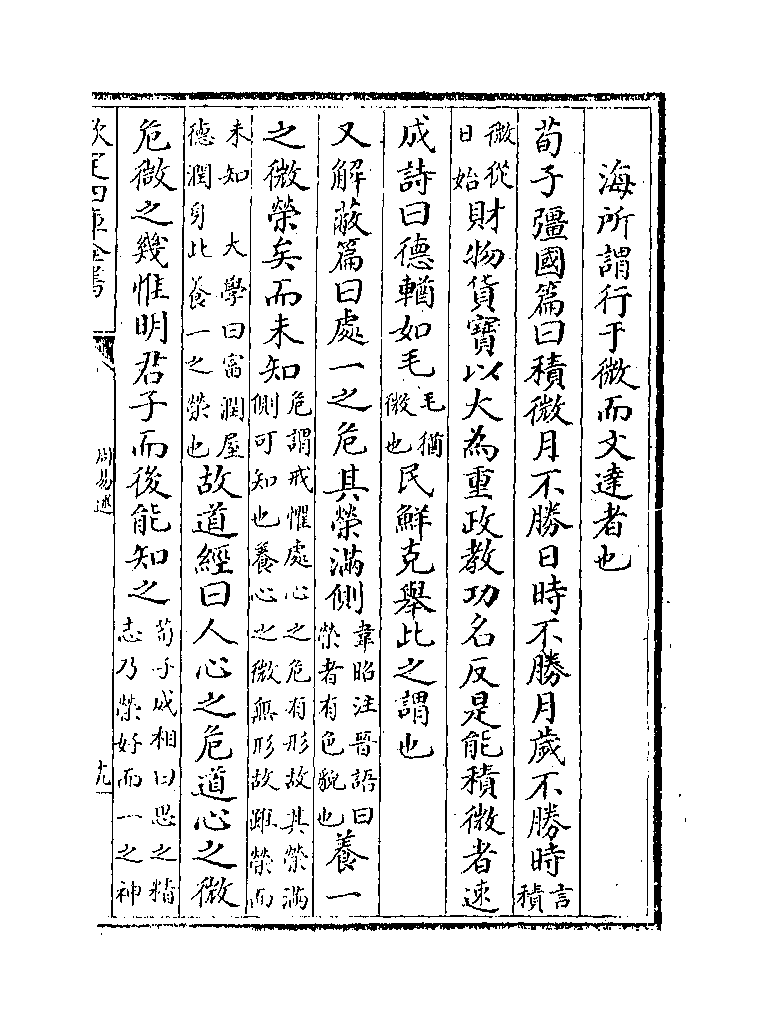 海所謂行于微而文達者也
荀子彊國篇曰積微月不勝日時不勝月歲不勝時言積
微從日始財物貨寳以大為重政教功名反是能積微者速
成詩曰德輶如毛毛猶微也民鮮克舉此之謂也
又解蔽篇曰處一之危其榮滿側韋昭注晉語曰榮者有色貌也養一
之微榮矣而未知危謂戒懼處心之危有形故其榮滿側可知也養心之微無形故雖榮而
未知 大學曰富潤屋德潤身此養一之榮也故道經曰人心之危道心之微
危微之幾惟明君子而後能知之荀子成相曰思之精志乃榮好而一之神
欽定四庫全書
周易述
九